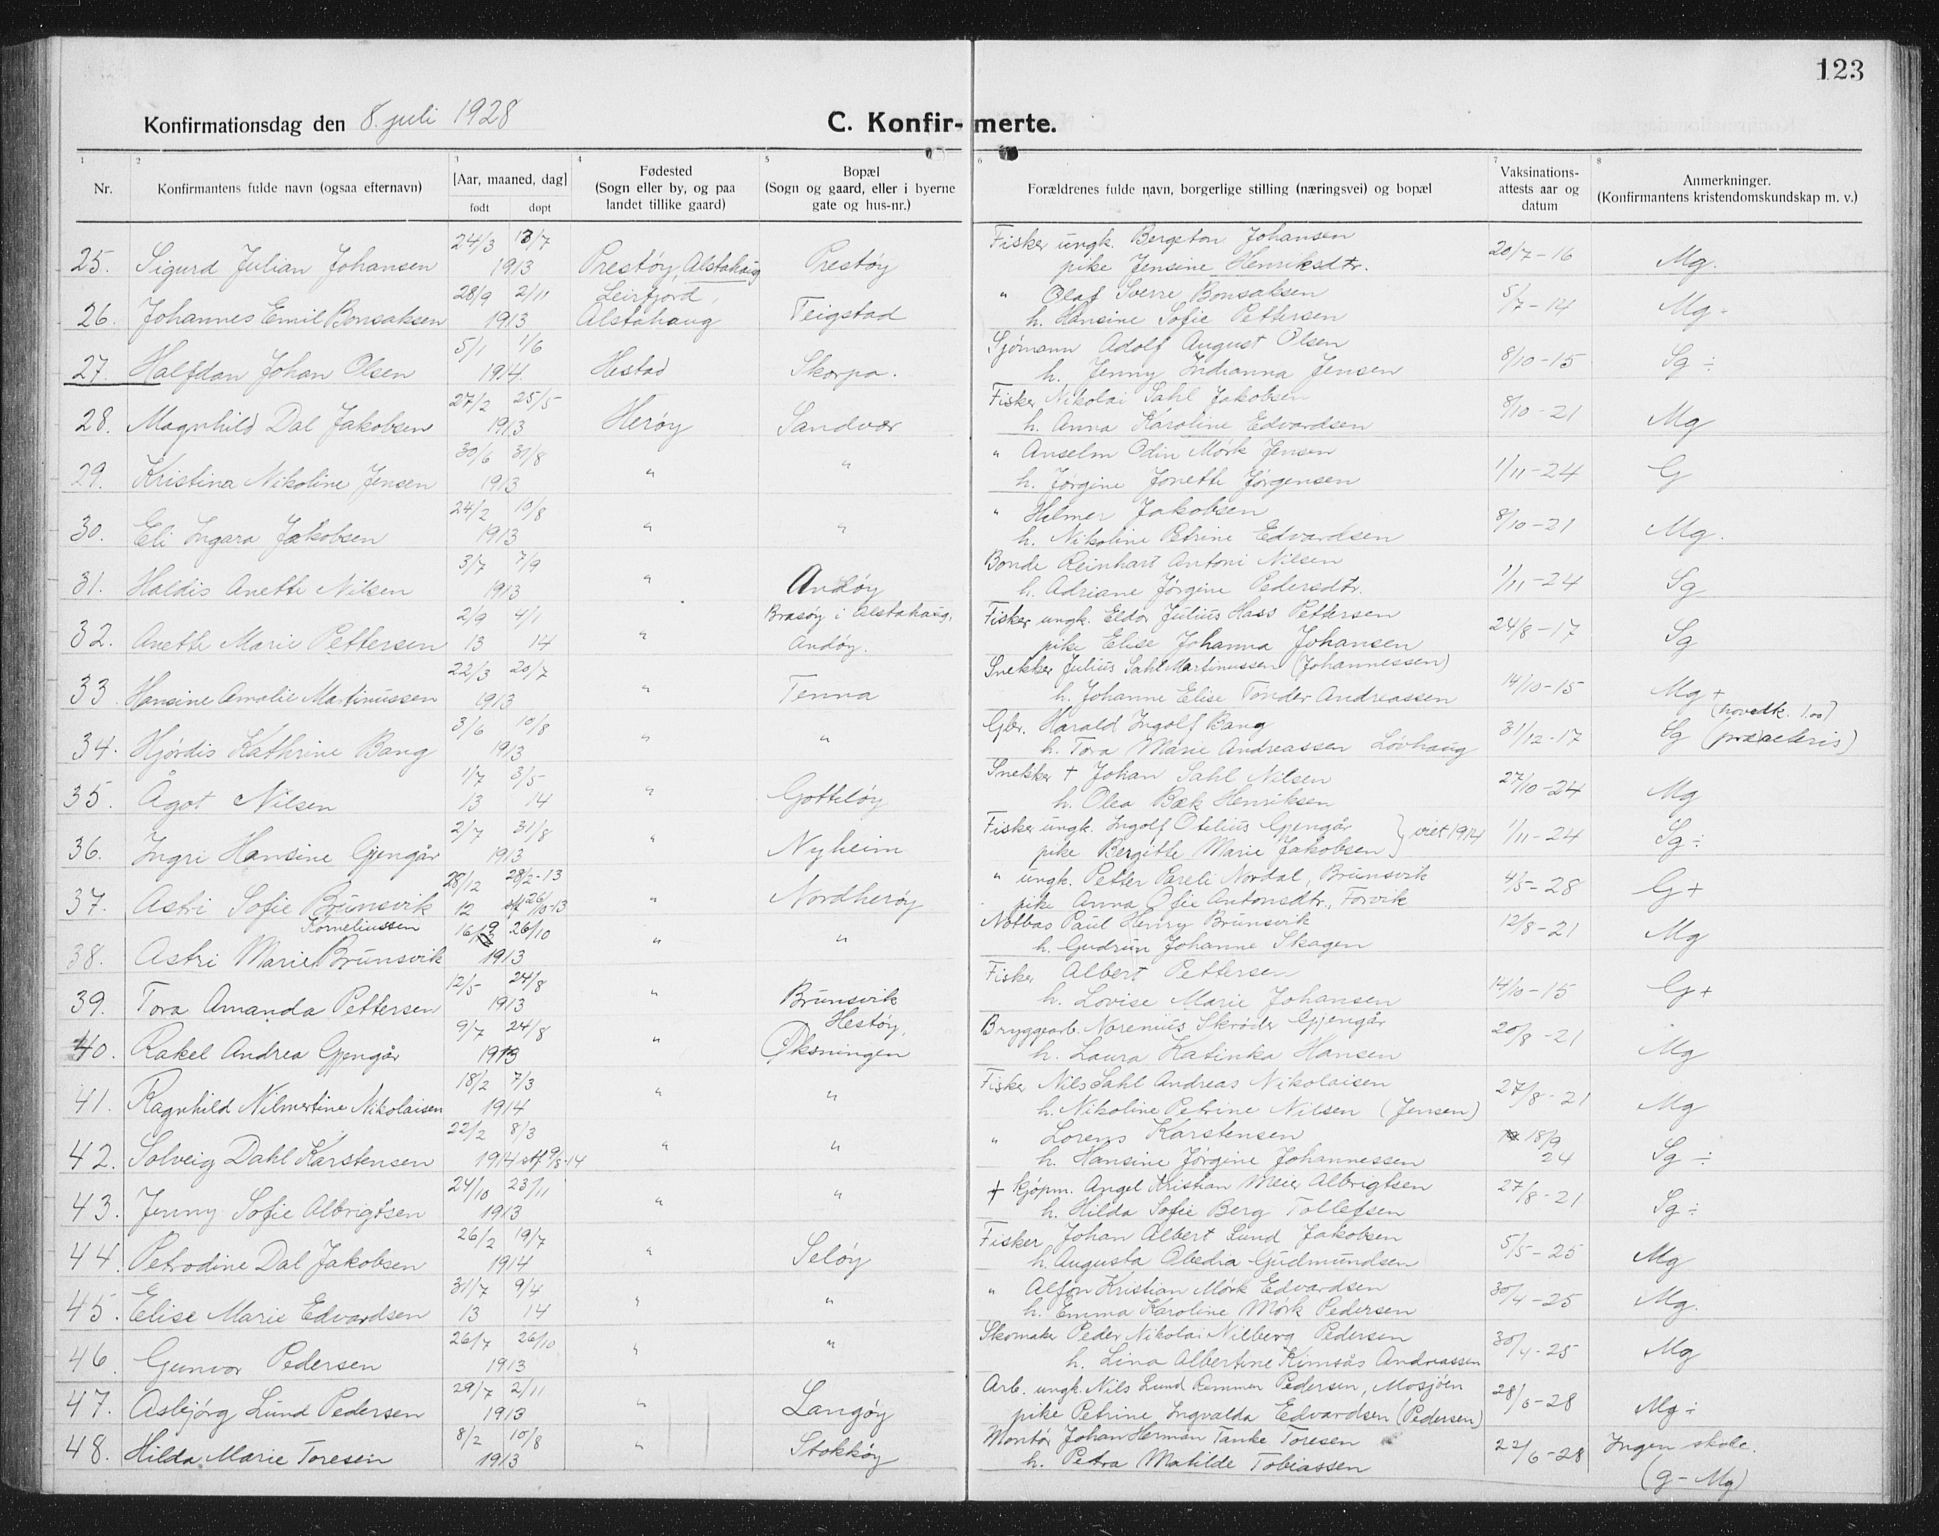 123
Konfirmationsdag den 8. juli 1928
C. Konfirmerte.
1 2 3 4 5 6 7 8
Nr. Konfirmantens fulde navn (ogsaa efternavn) [Aar, maaned, dag] født døpt Fødested (Sogn eller by, og paa landet tillike gaard) Bopæl (Sogn og gaard, eller i byerne gate og hus-nr.) Forældrenes fulde navn, borgerlige stilling (næringsvei) og bopæl Vaksinations-attests aar og datum Anmerkninger. (Konfirmantens kristendomskundskap m. v.)
24/3 13/7 Fisker ungk. Bergeton Johansen
25. Sigurd Julian Johansen 1913 Prestøy, Alstahaug Prestøy pike Jensine Henriksdtr. 20/7-16 Mg.
28/9 2/11 Leirfjord, " Olaf Sverre Bonsaksen
26. Johannes Emil Bonsaksen 1913 Alstahaug Teigstad h. Hansine Sofie Pettersen 5/7-14 Mg.
5/1 1/6 Sjømann Adolf August Olsen
27. Halfdan Johan Olsen 1914 Hestad Skorpa. h. Jenny Indianna Jensen 8/10-15 Sg ÷
27/2 25/5 Fisker Nikolai Sahl Jakobsen
28. Magnhild Dal Jakobsen 1913 Herøy Sandvær h. Anna Karoline Edvardsen 8/10-21 Mg
30/6 31/8 " Anselm Odin Mørk Jensen
29. Kristina Nikoline Jensen 1913 " " h. Jørgine Jonette Jørgensen 1/11-24 G
24/2 10/8 " Hilmer Jakobsen
30. Eli Ingara Jakobsen 1913 " " h. Nikoline Petrine Edvardsen 8/10-21 Mg.
3/7 7/9 Bonde Reinhart Antoni Nilsen
31. Haldis Anette Nilsen 1913 " Andøy h. Adriane Jørgine Pedersdtr. 1/11-24 Sg
2/9 4/1 Brasøy i Alstahaug, Fisker ungk. Eldor Julius Hass Pettersen
32. Anette Marie Pettersen 13 14 " Andøy. pike Elise Johanna Johansen 24/8-17 Sg
22/3 20/7 Snekker Julius Sahl Martinussen (Johannessen)
33 Hansine Amalie Martinussen 1913 " Tenna h. Johanne Elise Tønder Andreassen 14/10-15 Mg +
3/6 10/8 Gbr. Harald Ingolf Bang (hovedk. 1.00)
34. Hjørdis Kathrine Bang 1913 " " h. Tora Marie Andreassen Løvhaug 31/12-17 Sg (præceteris)
1/7 3/5 Snekker + Johan Sahl Nilsen
35. Ågot Nilsen 13 14 " Gotteløy h. Olea Bæk Henriksen 27/10-24 Mg
2/7 31/8 Fisker ungk. Ingolf Otelius Gjengår
36. Ingri Hansine Gjengår 1913 " Nyheim pike Bergitte Marie Jakobsen } viet 1914 1/11-24 Sg ÷
28/12 28/2-13 " ungk. Petter Pareli Nordal, Brunsvik
37. Astri Sofie Brunsvik 12 stf 26/10-13 " Nordherøy pike Anna Ofie Antonsdtr., Forvik 4/5-28 G+
Korneliussen 16/9 26/10 Notbas Paul Henry Brunsvik
38. Astri Marie Brunsvik 1913 " " h. Gudrun Johanne Skagen 12/8-21 Mg
12/5 24/8 Fisker Albert Pettersen
39. Tora Amanda Pettersen 1913 " Brunsvik h. Lovise Marie Johansen 14/10-15 G+
9/7 24/8 Hestøy, Bryggearb. Narenius Skrøder Gjengår
40. Rakel Andrea Gjengår 1913 " Øksningen h. Laura Katinka Hansen 20/8-21 Mg
18/2 7/3 Fisker Nils Sahl Andreas Nikolaisen
41. Ragnhild Nilmertine Nikolaisen 1914 " " h. Nikoline Petrine Nilsen (Jensen) 27/8-21 Mg
22/2 8/3 " Lorens Karstensen
42. Solveig Dahl Karstensen 1914 stf 9/8-14 " " h. Hansine Jørgine Johannessen 18/9 24 Sg ÷
24/10 23/11 + kjøpm. Angel Kristian Meier Albrigtsen
43. Jenny Sofie Albrigtsen 1913 " " h. Hilda Sofie Berg Tollefsen 27/8-21 Sg ÷
26/2 19/7 Fisker Johan Albert Lund Jakobsen
44. Petrodine Dal Jakobsen 1914 " Seløy h. Augusta Obedia Gudmundsen 5/5-25 Mg
31/7 9/4 " Alfon Kristian Mørk Edvardsen
45. Elise Marie Edvardsen 13 14 " " h. Emma Karoline Mørk Pedersen 30/4-25 Mg.
26/7 26/10 Skomaker Peder Nikolai Nilberg Pedersen
46. Gunvor Pedersen 1913 " " h. Lina Albertine Kimsås Andreassen 30/4-25 Mg
29/7 2/11 Arb. ungk. Nils Lund Remmen Pedersen, Mosjøen
47. Asbjørg Lund Pedersen 1913 " Langøy pike Petrine Ingvalda Edvardsen (Pedersen) 28/6-28 Mg ÷
8/2 10/8 Montør Johan Herman Tanke Toresen
48. Hilda Marie Toresen 1913 " Stokkøy h. Petra Matilde Tobiassen 22/6-28 Ingen skole.
(g - Mg)